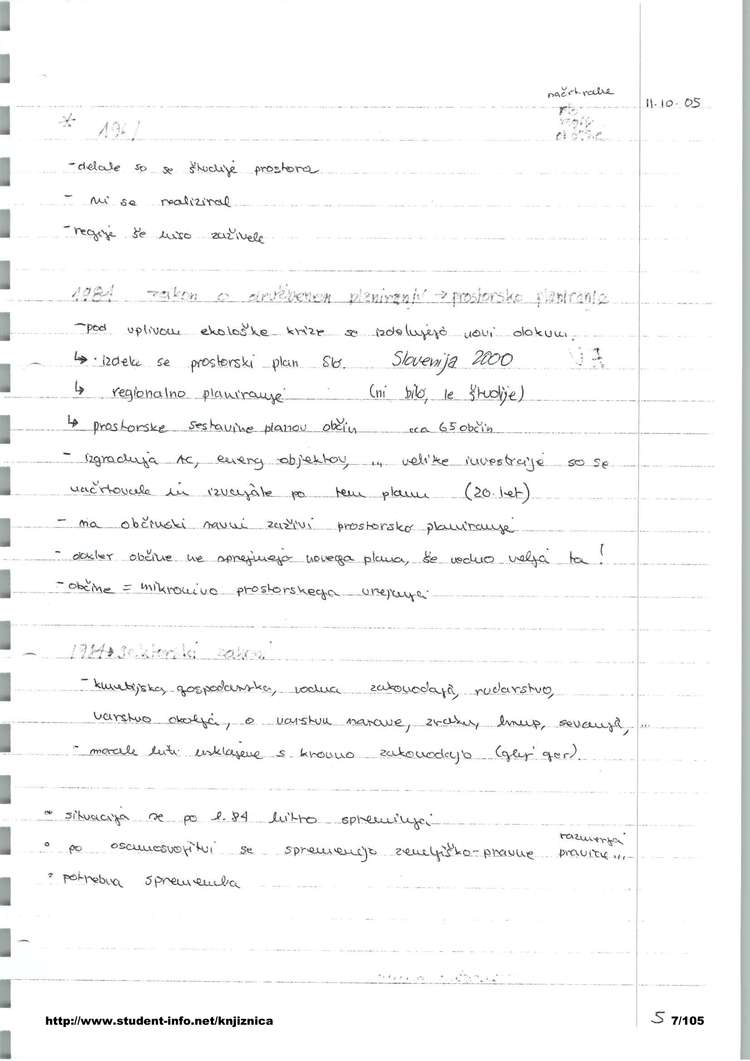 načrtovalne
11.10.05
* 196
-delale so se študije prostora
- ni se realiziral
- regije še niso zaživele
1984 zakon o družbenem planiranju → prostorsko planiranje
-pod vplivom ekološke krize se izdelujejo novi dokum.
↳ · izdela se prostorski plan Slo. Slovenija 2000
↳ regionalno planiranje (ni bilo, le študije)
↳ prostorske sestavine planov občin cca 65 občin
- izgradnja AC, energ objektov, ... velike investicije so se
načrtovale in izvajale po tem planu (20. let)
- na občinski ravni zaživi prostorsko planiranje
- dokler občine ne sprejmejo novega plana, še vedno velja ta!
- občine = mikronivo prostorskega urejanja
1984 → sektorski zakoni
- kmetijska, gospodarska, vodna zakonodaja, rudarstvo,
varstvo okolja, o varstvu narave, zraku, hrup, sevanja, ...
- morale biti usklajene s krovno zakonodajo (glej gor).
* situacija se po l. 84 hitro spreminja
° po osamosvojitvi se spremenijo zemljiško-pravne razmerja pravice...
° potrebna sprememba
http://www.student-info.net/knjiznica
5 7/105